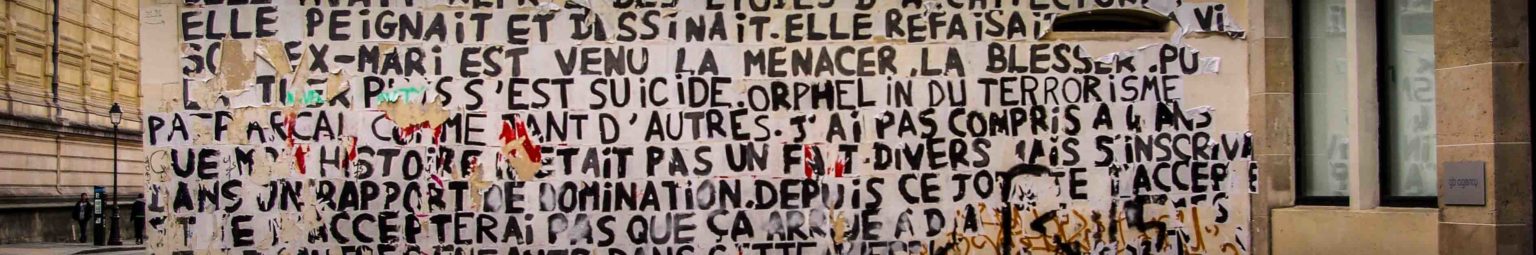 DES ÉTUDES D'ARCHITECTURE
ELLE PEIGNAIT ET DESSINAIT.ELLE REFAISAIT VI
SON EX-MARI EST VENU LA MENACER.LA BLESSER.PU
LA TUER PUIS S'EST SUICIDE.ORPHELIN DU TERRORISME
PATRIARCAL COMME TANT D'AUTRES.J'AI PAS COMPRIS A 4 ANS
QUE MON HISTOIRE N'ETAIT PAS UN FAIT-DIVERS MAIS S'INSCRIVAIT
DANS UN RAPPORT DE DOMINATION.DEPUIS CE JOUR JE N'ACCEPTE
ET JE N'ACCEPTERAI PAS QUE ÇA ARRIVE A D'A ES
DANS CETTE
gb agency